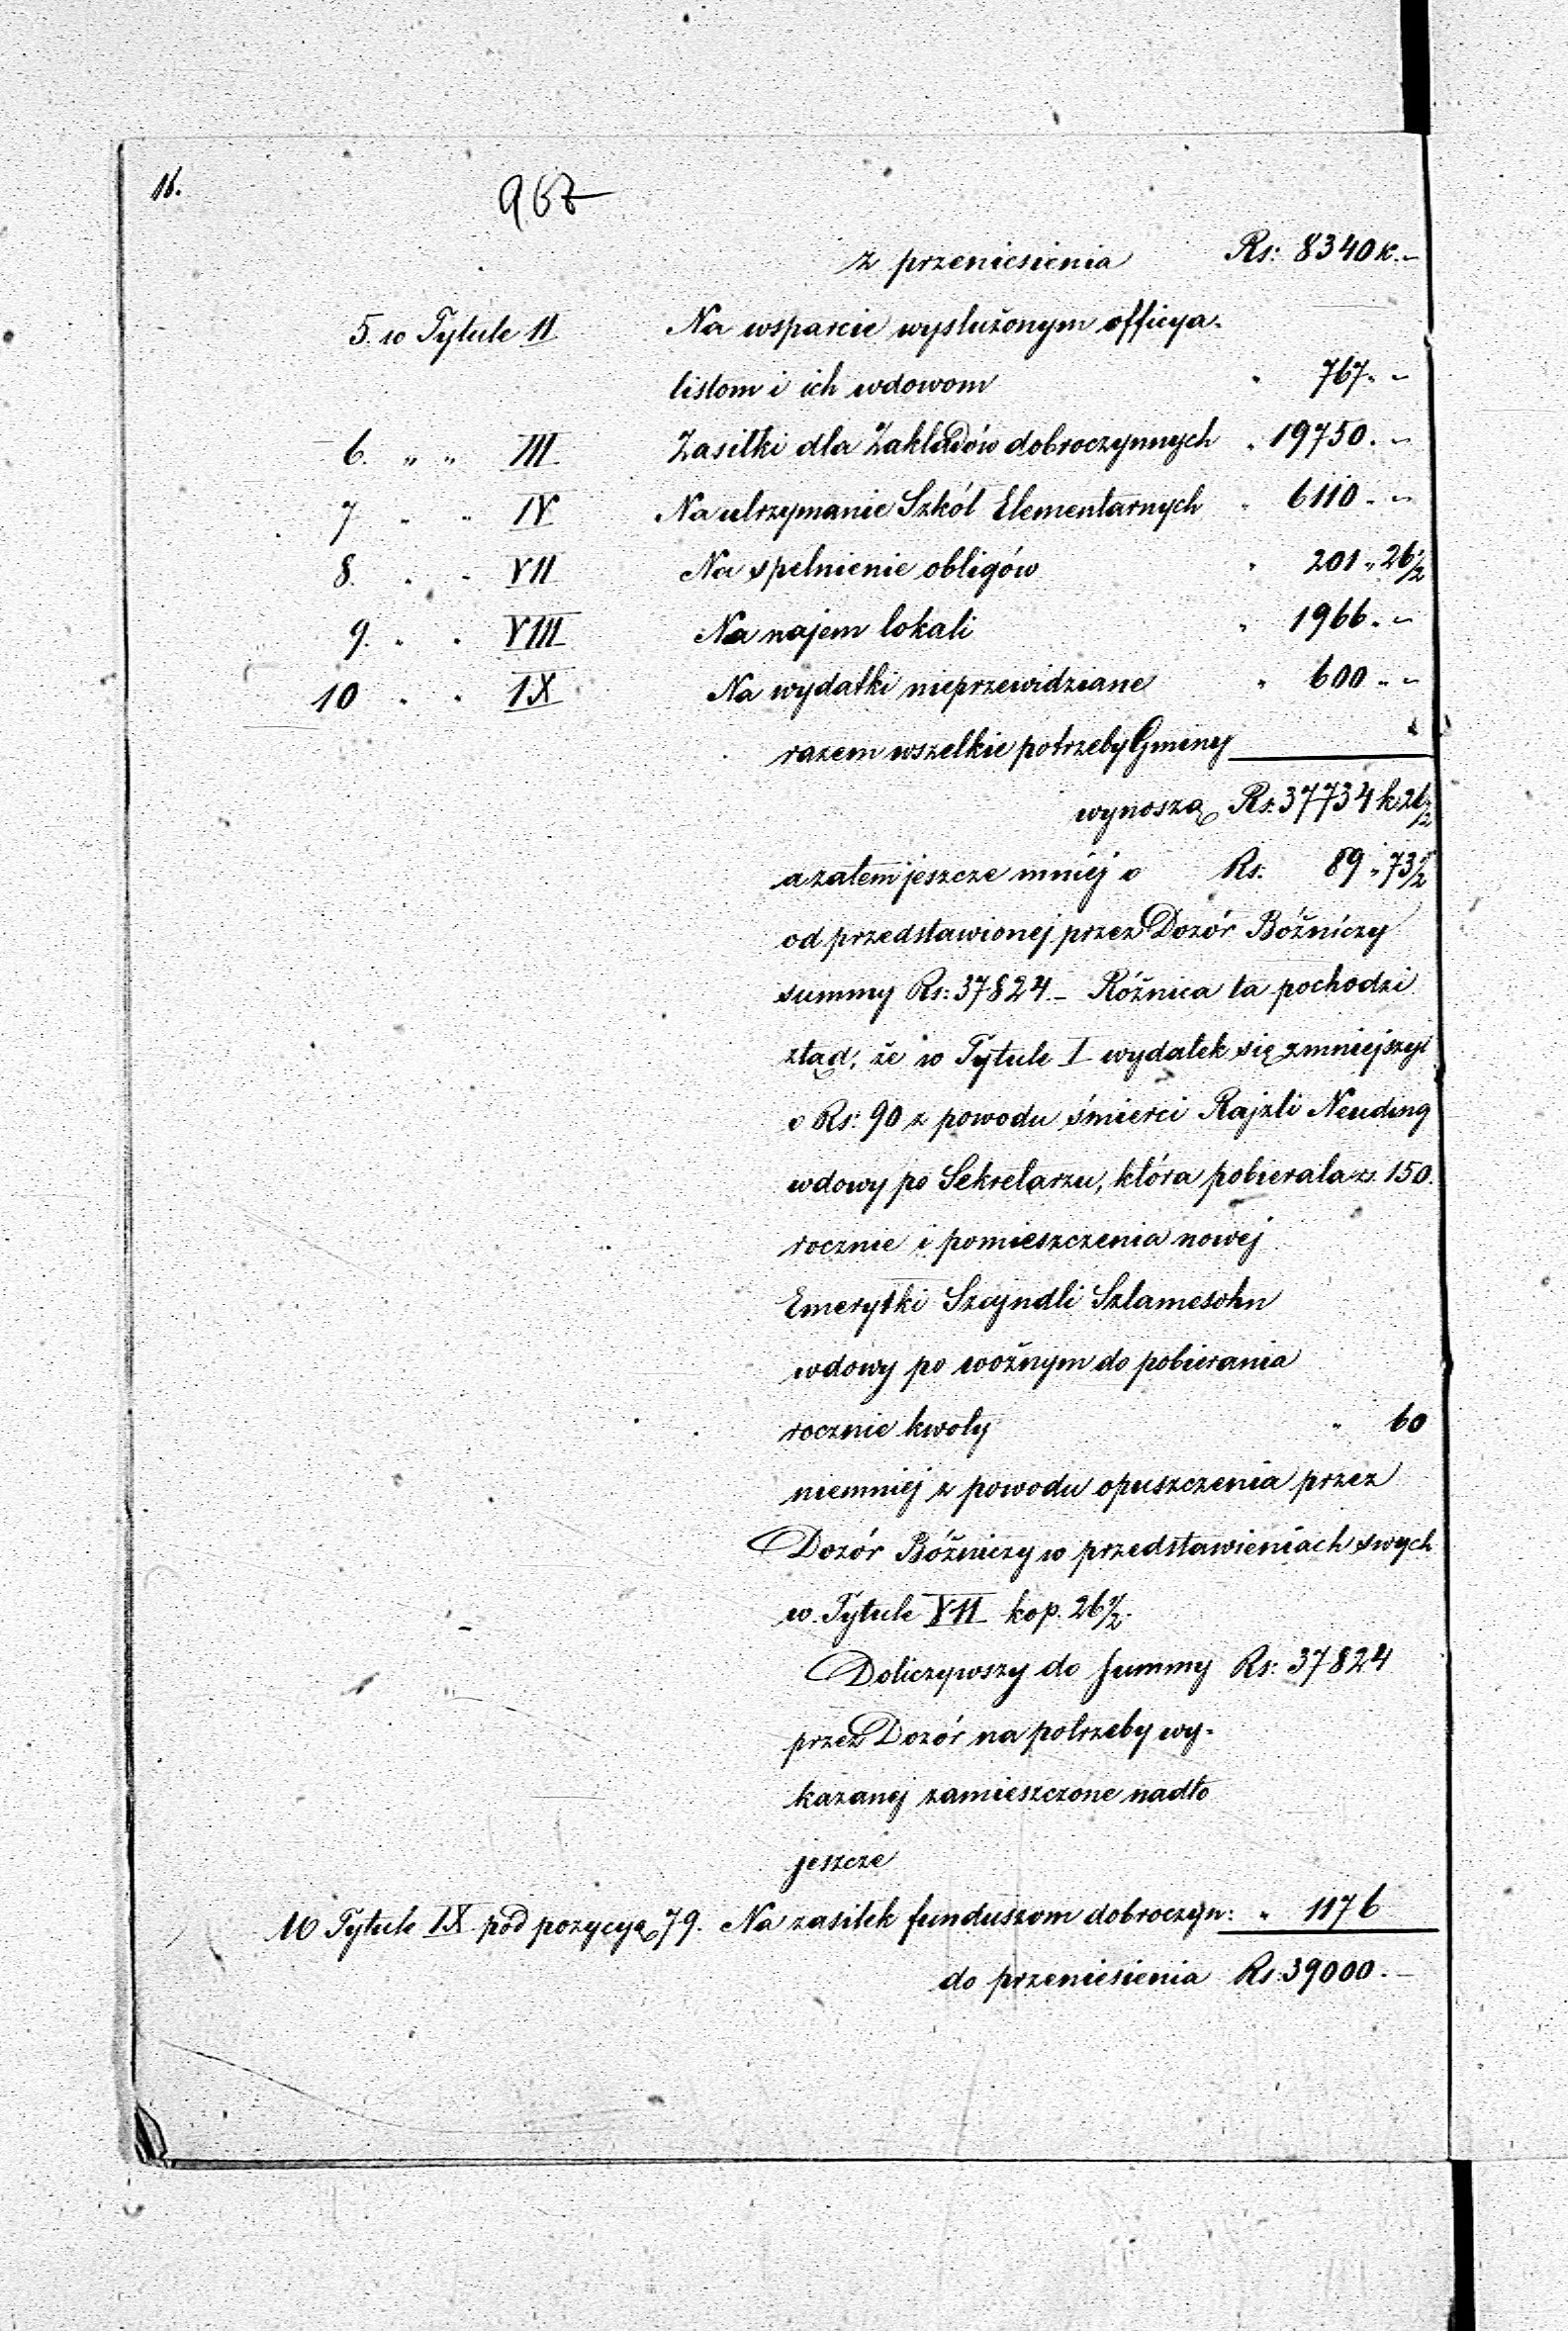 16.
967
z przeniesienia Rs: 8340 k. –
5. w Tytule II Na wsparcie wysłużonym officya-
listom i ich wdowom " 767 " –
6. " " III Zasiłki dla Zakładów dobroczynnych " 19750. –
7 " " IV Na utrzymanie Szkół Elementarnych " 6110 " –
8. " " VII Na spełnienie obligów " 201 " 26 1/2
9. " " VIII Na najem lokali " 1966 " –
10 " " IX Na wydatki nieprzewidziane " 600 " –
razem wszelkie potrzeby Gminy
wynoszą Rs: 37734 k. 26 1/2
a zatem jeszcze mniej o Rs: 89 " 73 1/2
od przedstawionej przez Dozór Bóżniczy
summy Rs: 37824. – Różnica ta pochodzi
ztąd, że w Tytule I wydatek się zmniejszył
o Rs: 90 z powodu śmierci Rajzli Neuding
wdowy po Sekretarzu, która pobierała rs. 150.
rocznie i pomieszczenia nowej
Emerytki Szajndli Szlamesohn
wdowy po woźnym do pobierania
rocznie kwoty " 60
niemniej z powodu opuszczenia przez
Dozór Bóżniczy w przedstawieniach swych
w. Tytule VII kop. 26 1/2.
Doliczywszy do summy Rs: 37824
przez Dozór na potrzeby wy-
kazanej zamieszczone nadto
jeszcze
w Tytule IX pod pozycyą 79. Na zasiłek funduszom dobroczyn: " 1176
do przeniesienia Rs: 39000. –